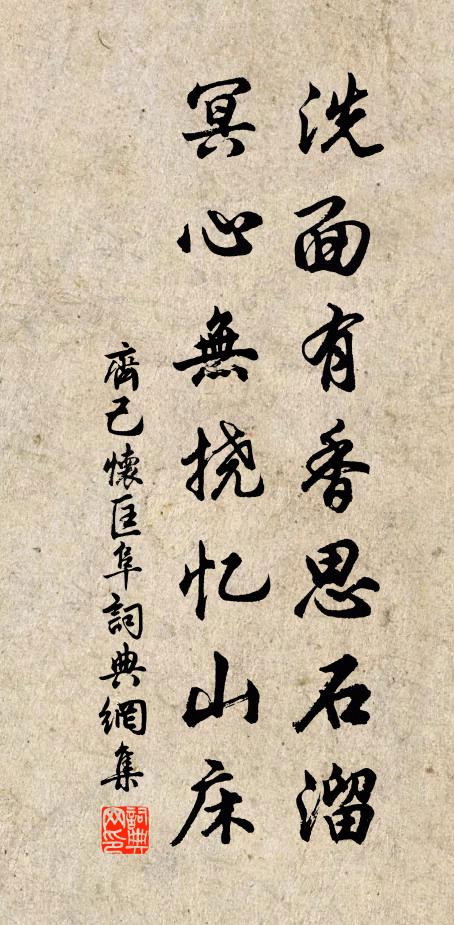 洗面有香思石溜
冥心無挠忆山床
齊己懷匡阜詞典網集
詞典網印